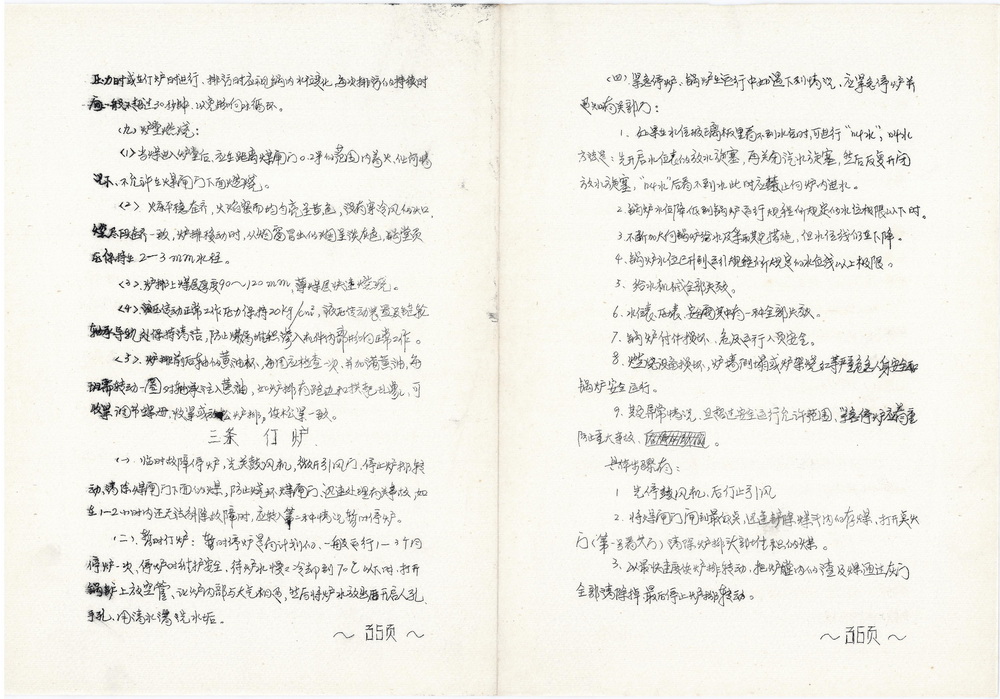 压力时或在仃炉时进行、排污时应视锅内水位变化,每次排污的持续时
间一般不超过30分钟,以免影响水循环。
(九)炉膛燃烧:
(1)当煤进入炉膛后,应在距离煤闸门0.2米的范围内着火,任何情
况下、不允许在煤闸门下面燃烧。
(2)火床平稳整齐,火焰紧而均匀亮呈黄色,没有寒冷风的火口
燃尽段整齐一致,炉排移动时,从烟窗冒出的烟呈淡灰色,膛堂负
压保持在2—3mm水柱。
(3).炉排上煤层厚度90~120mm,薄煤层快速燃烧。
(4).液压传动正常工作压力保持20kg/cm²,液压传动装置及蜗轮
轴承导轨必保持清洁,防止煤屑堆积渗入机件内部影响正常工作。
(5).炉排前后轴的黄油杯、每周应检查一次、并加满黄油,每
班需转动一圈对轴承注入黄油,如炉排有跑边和拱起现象,可
收紧调节螺母,收紧或放松炉排,使松紧一致。
三条 仃炉.
(一).临时故障停炉,先关鼓风机,微开引风门、停止炉排转
动,清除煤闸门下面的煤,防止烧坏煤闸门、迅速处理有关事故,如
在1-2小时内还无法排除故障时,应转入第二种情况,暂时停炉。
(二).暂时仃炉:暂时停炉是有计划的、一般运行1—3个月
停炉一次,停炉时维护安全,待炉水慢慢冷却到70℃以下时,打开
锅炉上放空管、让炉内部与大气相通,然后将炉水放出后开启人孔、
手孔、用清水清洗水垢。
~35页~
(四).紧急停炉、锅炉在运行中如遇下列情况,应紧急停炉并
通知有关部门:
1、如果在水位玻璃板里看不到水位时,可进行“叫水”,叫水
方法是:先开启水位表的放水旋塞,再关闭汽水旋塞,然后反复开闭
放水旋塞,“叫水”后看不到水此时应禁止向炉内进水。
2.锅炉水位降低到锅炉运行规程所规定的水位极限以下时。
3.不断加大向锅炉给水及采取其它措施,但水位线仍在下降。
4.锅炉水位已升到运行规程所规定的水位线以上极限。
5.给水机械全部失效。
6.水位表、压力表、安全阀其中有一种全部失效。
7.锅炉付件损坏、危及运行人员安全。
8.燃烧设备损坏,炉墙倒塌或炉架烧红等严重危急人身安全和
锅炉安全运行。
9.其它异常情况,且超过安全运行允许范围、紧急停炉应着重
防止重大事故、。
具体步骤有:
1.先停鼓风机、后仃止引风
2.将煤闸门闸到最低点,迅速铲除煤斗内的存煤,打开点火
门(第一看火门)清除炉排头部堆积的煤。
3、以最快速度使炉排转动,把炉膛内的渣及煤通过灰门
全部清除掉,最后停止炉排转动。
~36页~